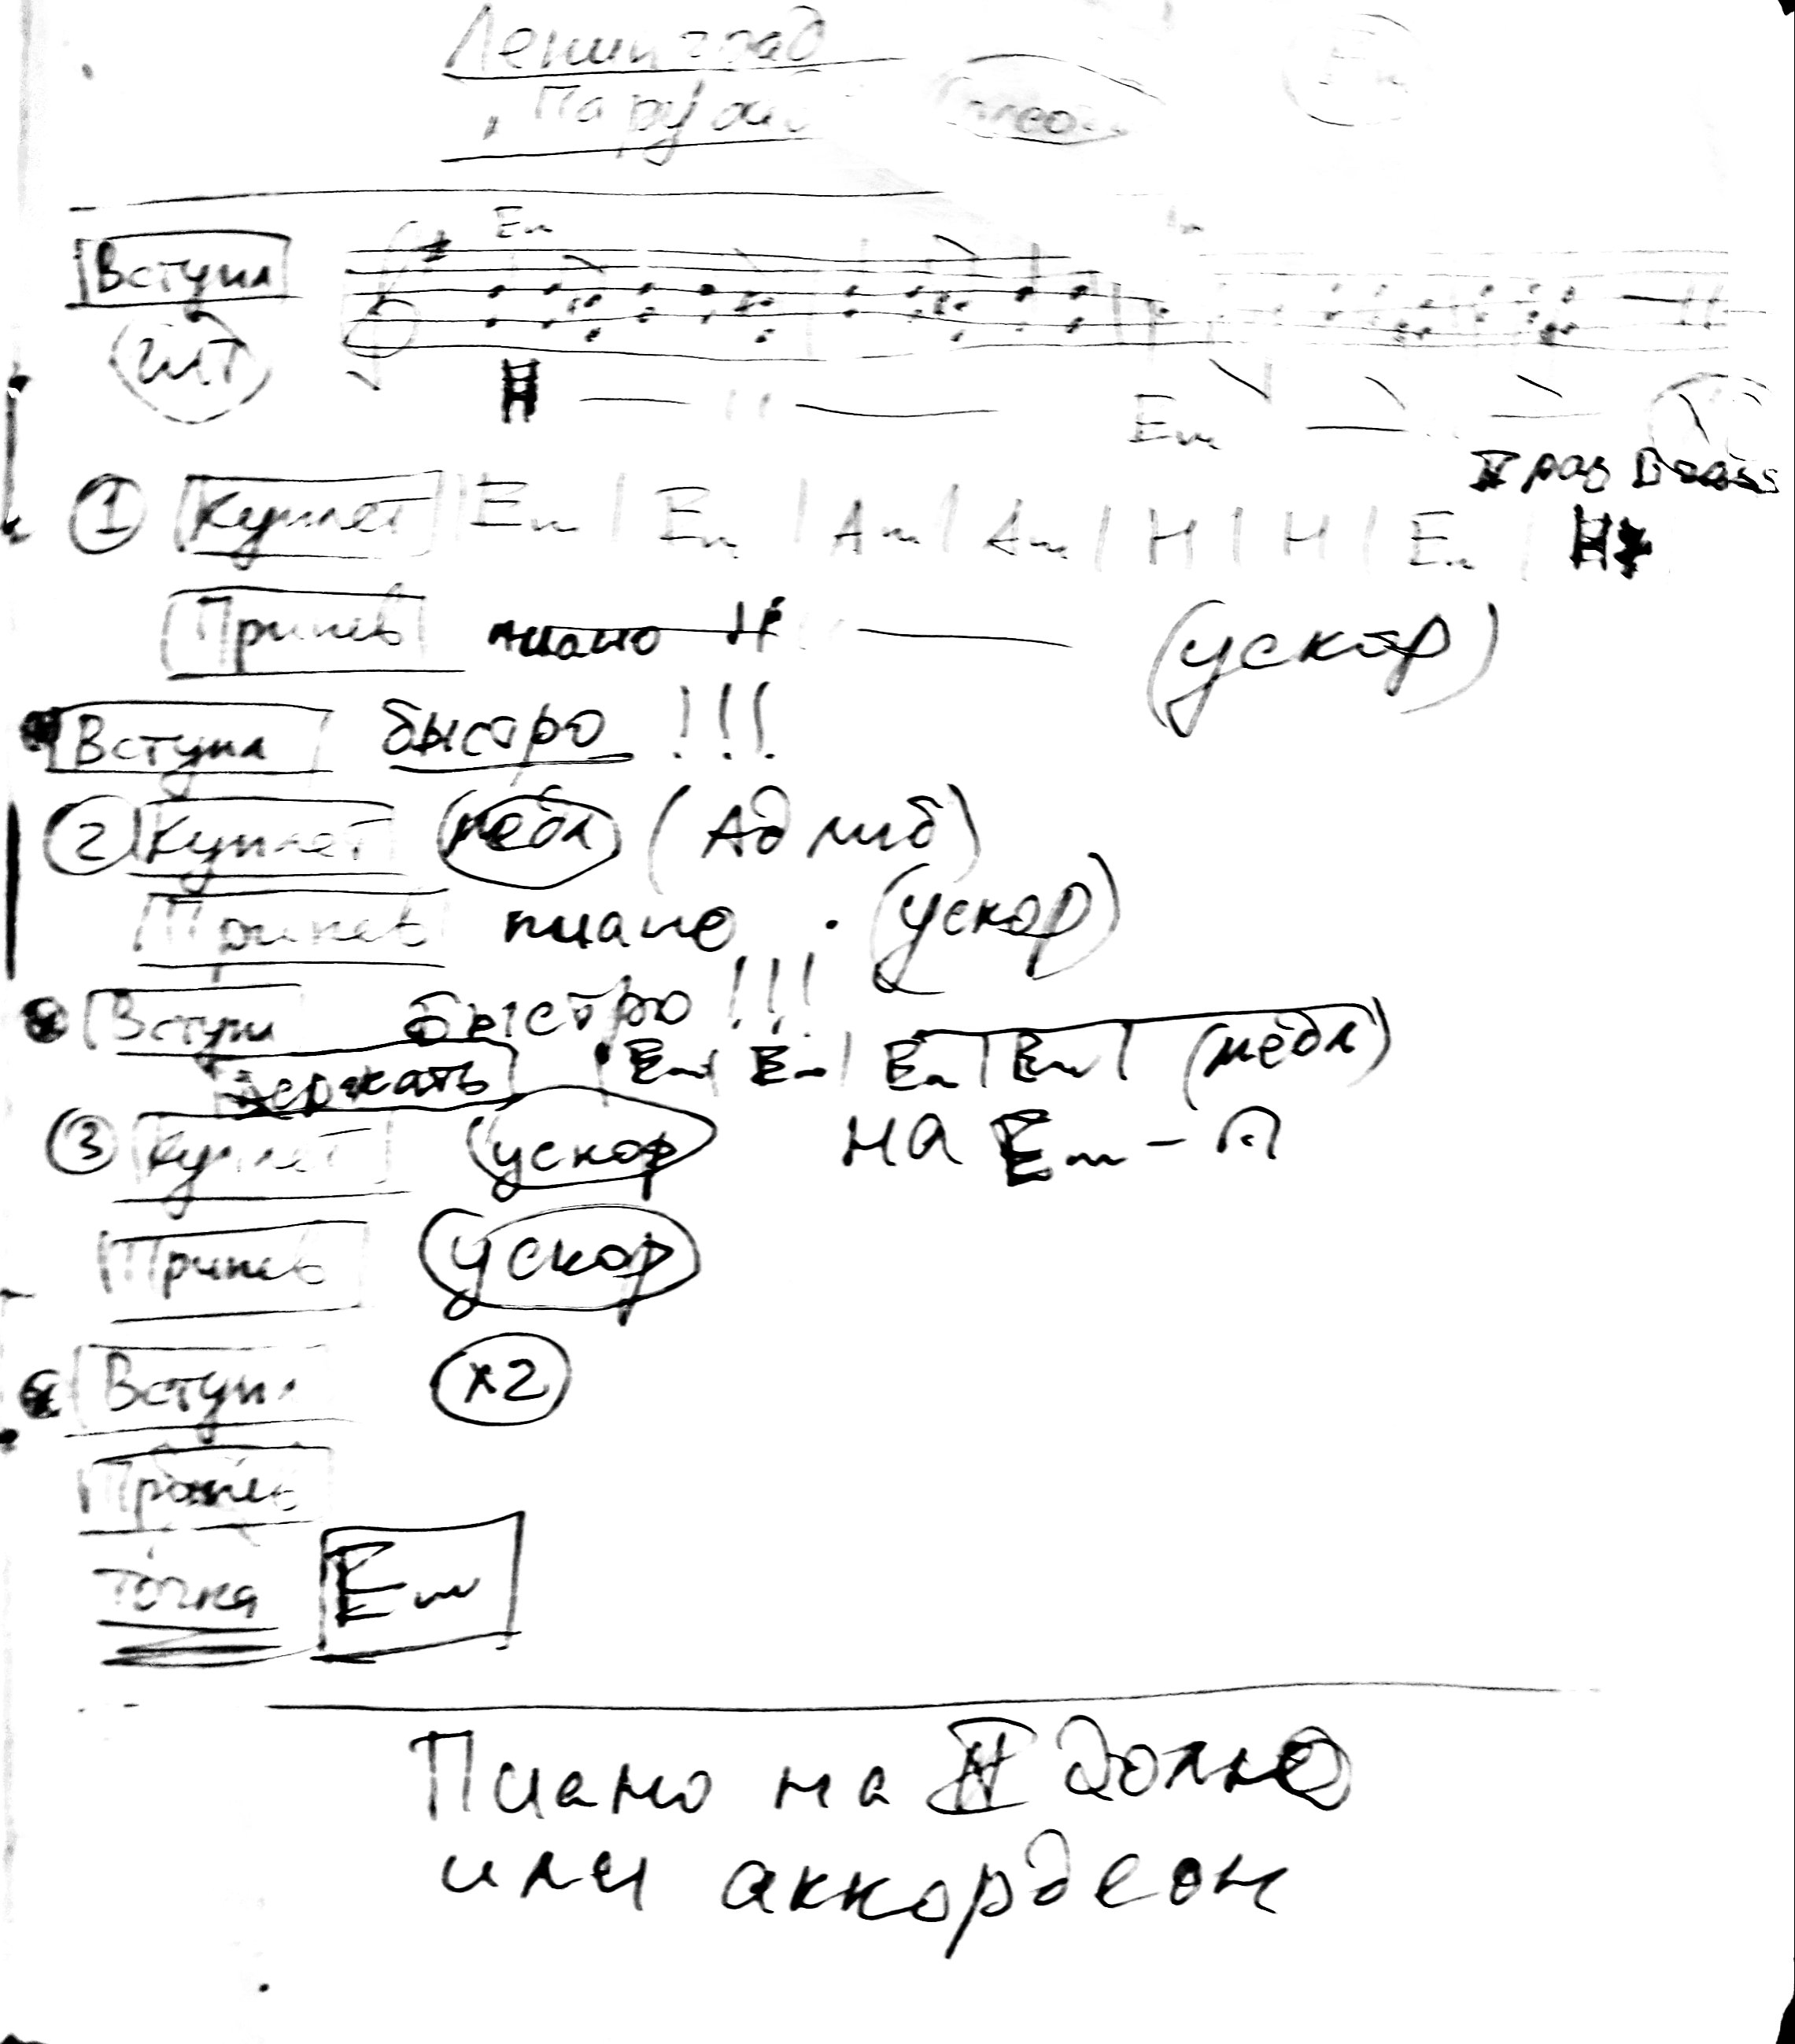 Ленинград
Em
Вступл
шт
H
Em
II раз Brass
① Куплет Em | Em | Am | Am | H | H | Em | H7
Припев пиано (ускор)
Вступл быстро !!!
② Куплет медл (Ад либ)
Припев пиано (ускор)
Вступл быстро !!!
держать Em | Em | Em | Em | (медл)
③ Куплет ускор на Em -
Припев ускор
Вступл x2
Припев
точка Em
Пиано на II долю
или аккордеон